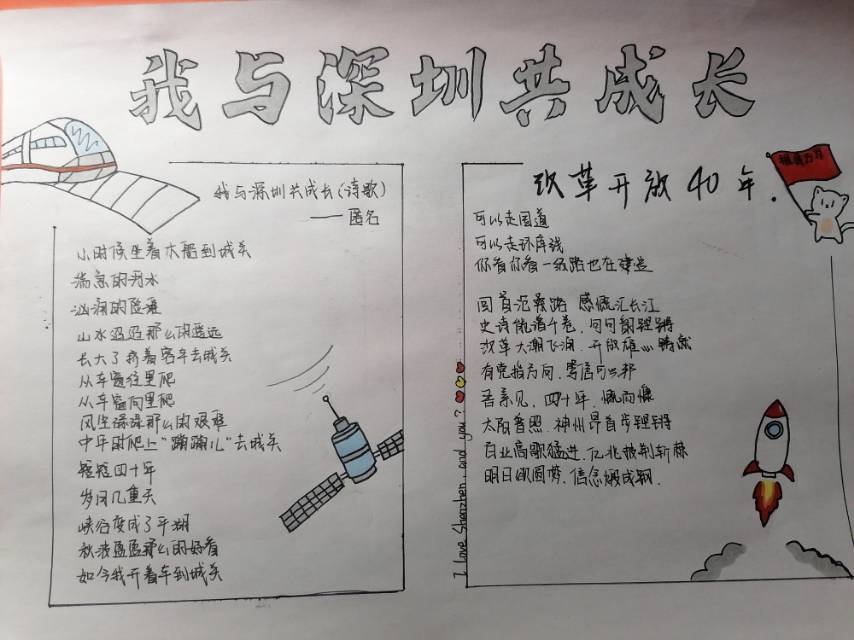 我与深圳共成长
我与深圳共成长(诗歌)
——匿名
小时候坐着木船到城关
湍急的河水
汹涌的险滩
山水迢迢那么的遥远
长大了挤着客车去城关
从车窗往里爬
从车窗向里爬
风尘漫漫那么的艰难
中年时爬上"蹦蹦儿"去城关
短短四十年
岁月几重天
峡谷变成了平湖
秋波盈盈那么的好看
如今我开着车到城关
I love Shenzhen, and you?
改革开放40年.
可以走国道
可以走环库线
你看你看一级路也在建造
回首沧桑路 感慨汇长江
史诗 千卷,句句韵铿锵
改革大潮飞涌,开放雄心
有党指方向,
苦 见,四十年,慨而慷
太阳普照,神州昂首步铿锵
百业高歌猛进,亿兆披荆斩棘
明日 圆梦,信念煅成钢.